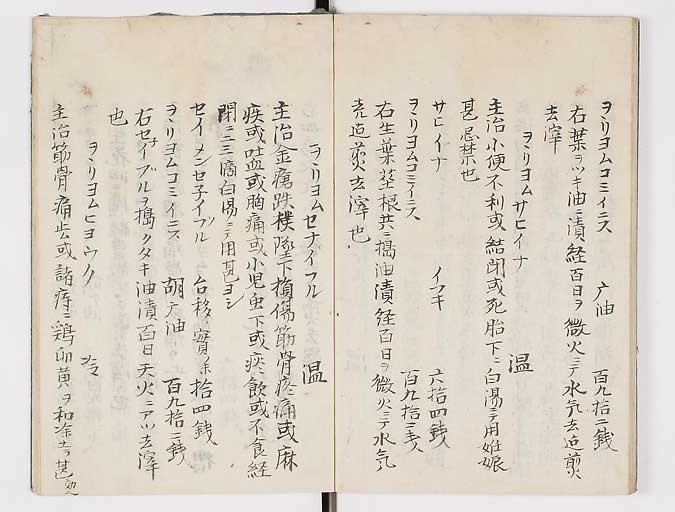 ヲヽリヨムコミイニス 广油 百九拾二銭
右葉ヲツキ油ニ漬経百日ヲ微火ニテ水気去迠煎
去滓
ヲヽリヨムサヒイナ 温
主治小便不利或結閉或死胎下ニ白湯ニテ用妊娠
甚忌禁也
サヒイナ イフキ 六拾四銭
ヲヽリヨムコミイニス 百九拾二銭
右生葉莖根共ニ搗油漬経百日ヲ微火ニテ水気
売迠煎去滓也
ヲヽリヨムセナイフル 温
主治金瘡跌撲墜下損傷筋骨疼痛或麻
疾或吐血或胸痛或小児虫下或痰飲或不食経
閉二三滴白湯ニテ用甚ヨシ
セイメンセ子イブル 台移實 拾四銭
ヲヽリヨムコミイニス 胡广油 百九拾二銭
右セイブルヲ搗クタキ油漬百日天火ニアツ去滓
也
ヲヽリヨムヒヨウク 冷
主治筋骨痛 或諸痔ニ鶏卵黄ヲ和 甚